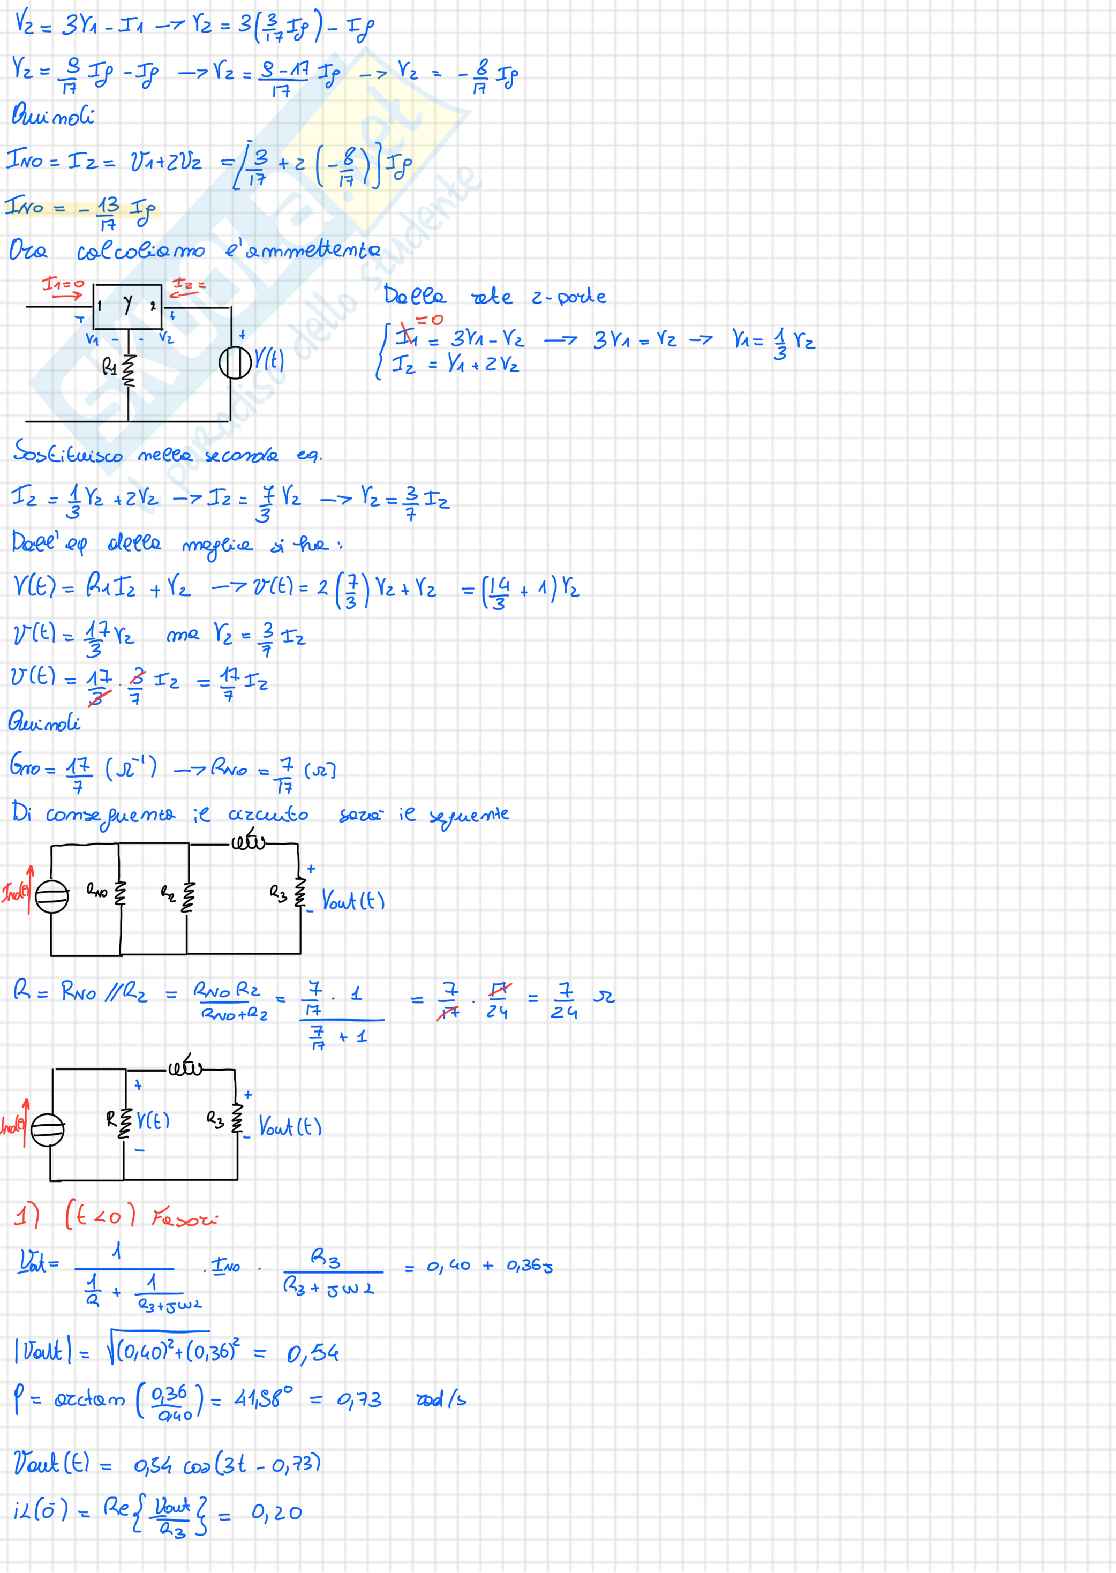 V2 = 3V1 - I1 → V2 = 3(3/17 Ig) - Ig
V2 = 9/17 Ig - Ig → V2 = 9-17/17 Ig → V2 = -8/17 Ig
Quindi
INO = I2 = V1+2V2 = [3/17 + 2(-8/17)] Ig
INO = -13/17 Ig
Ora calcoliamo l'ammettenza
I1=0 I2=
1 Y 2
+ V1 - - V2 +
R1 + V(t)
Dalla rete 2-porte
=0
I1 = 3V1 - V2 → 3V1 = V2 → V1 = 1/3 V2
I2 = V1 + 2V2
Sostituisco nella seconda eq.
I2 = 1/3 V2 + 2V2 → I2 = 7/3 V2 → V2 = 3/7 I2
Dall'eq della maglia si ha:
V(t) = R1I2 + V2 → v(t) = 2(7/3)V2 + V2 = (14/3 + 1)V2
v(t) = 17/3 V2 ma V2 = 3/7 I2
v(t) = 17/3 · 3/7 I2 = 17/7 I2
Quindi
GNO = 17/7 (Ω⁻¹) → RNO = 7/17 (Ω)
Di conseguenza il circuito sarà il seguente
RNO R2 R3 + - Vout(t)
R = RNO // R2 = RNO R2/RNO+R2 = 7/17 · 1 / 7/17 + 1 = 7/17 · 17/24 = 7/24 Ω
R + V(t) - R3 + - Vout(t)
1) (t<0) Fasori
Vout = 1 / 1/R + 1/R3+jω2 · INO · R3/R3+jω2 = 0,40 + 0,36j
|Vout| = √(0,40)²+(0,36)² = 0,54
φ = arctan (0,36/0,40) = 41,98° = 0,73 rad/s
Vout(t) = 0,54 cos(3t - 0,73)
iL(0⁻) = Re{Vout/R3} = 0,20
skuola.net
il paradiso dello studente